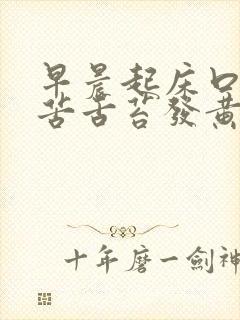 早晨起床口
苦舌苔發黃
十年磨一劍神